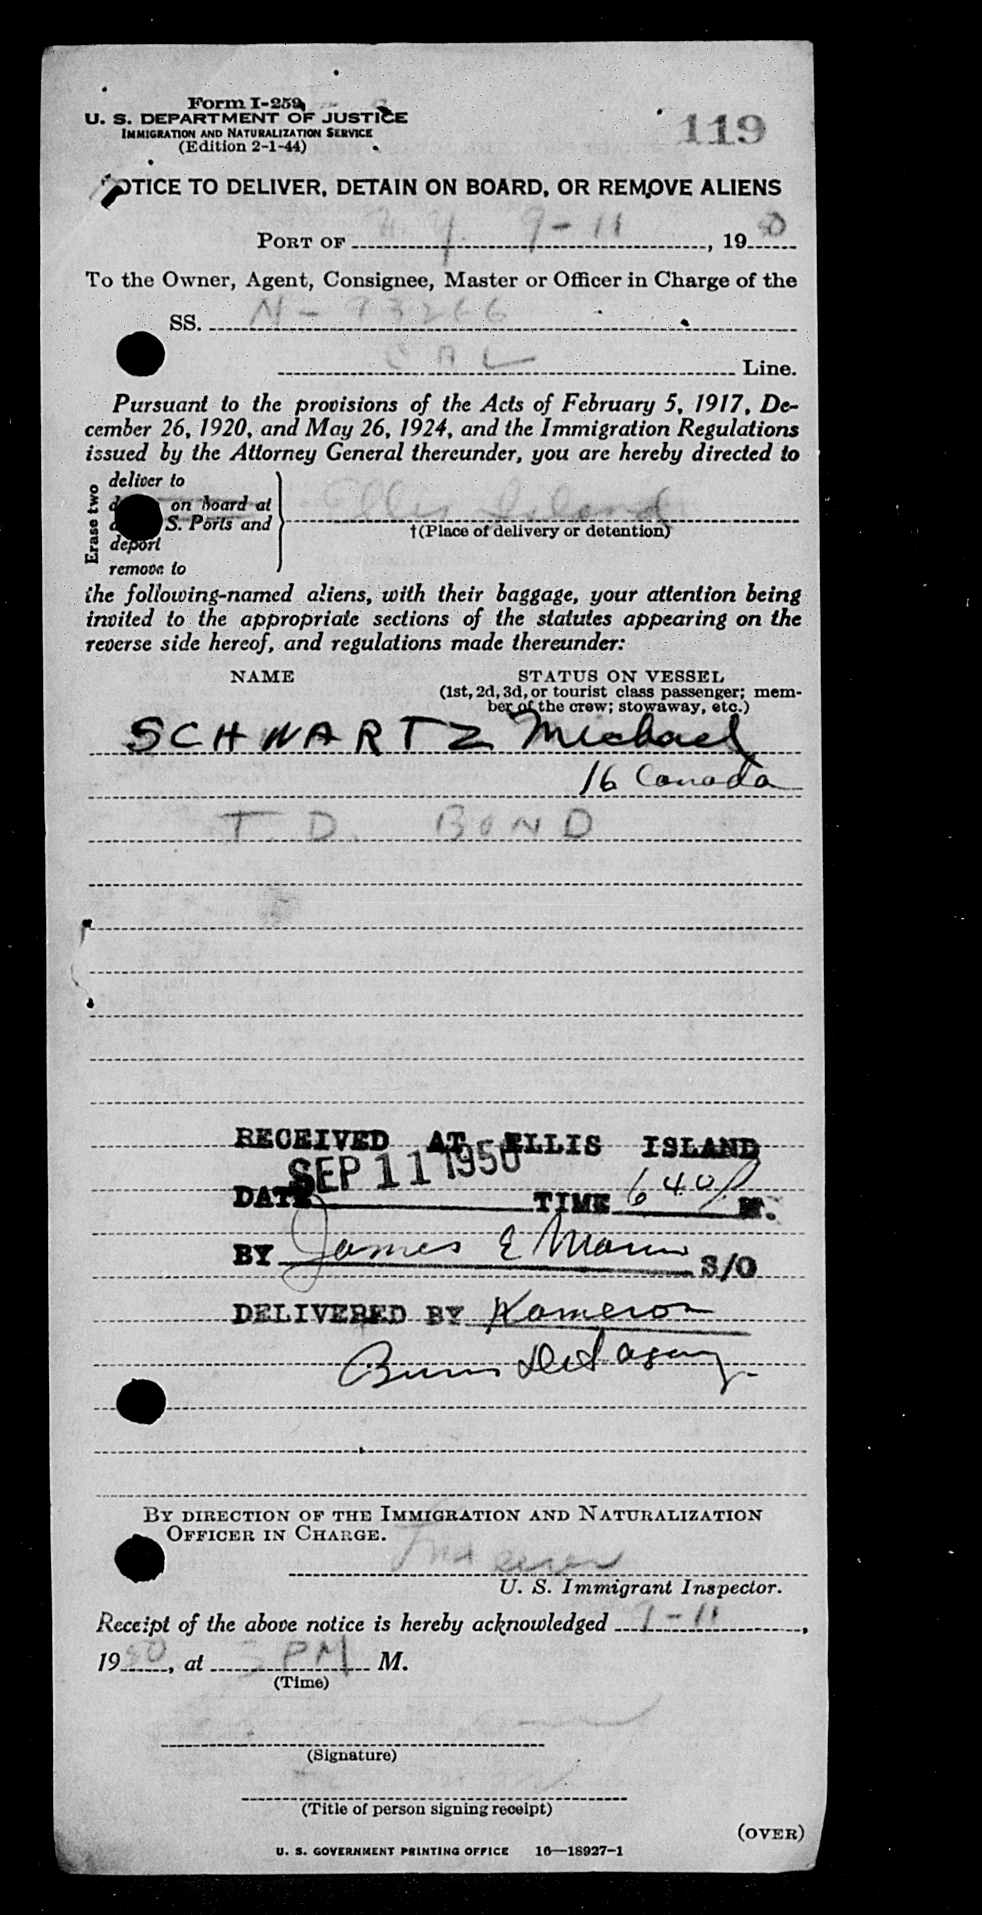 Form I-259
U. S. DEPARTMENT OF JUSTICE
IMMIGRATION AND NATURALIZATION SERVICE
(Edition 2-1-44)
119
NOTICE TO DELIVER, DETAIN ON BOARD, OR REMOVE ALIENS
PORT OF N.Y. 9-11, 1950
To the Owner, Agent, Consignee, Master or Officer in Charge of the
SS. N-93266
CAL Line.
Pursuant to the provisions of the Acts of February 5, 1917, De-
cember 26, 1920, and May 26, 1924, and the Immigration Regulations
issued by the Attorney General thereunder, you are hereby directed to
Erase two
deliver to
on board at
S. Ports and
deport
remove to
Ellis Island
†(Place of delivery or detention)
the following-named aliens, with their baggage, your attention being
invited to the appropriate sections of the statutes appearing on the
reverse side hereof, and regulations made thereunder:
NAME STATUS ON VESSEL
(1st, 2d, 3d, or tourist class passenger; mem-
ber of the crew; stowaway, etc.)
SCHWARTZ Michael
16 Canada
T. D. BOND
RECEIVED AT ELLIS ISLAND
SEP 11 1950
DATE TIME 640 P M.
BY James E S/O
DELIVERED BY Kameron
Burns Det Agency.
BY DIRECTION OF THE IMMIGRATION AND NATURALIZATION
OFFICER IN CHARGE.
U. S. Immigrant Inspector.
Receipt of the above notice is hereby acknowledged 9-11,
1950, at 3 PM M.
(Time)
(Signature)
(Title of person signing receipt)
(OVER)
U. S. GOVERNMENT PRINTING OFFICE 16—18927-1